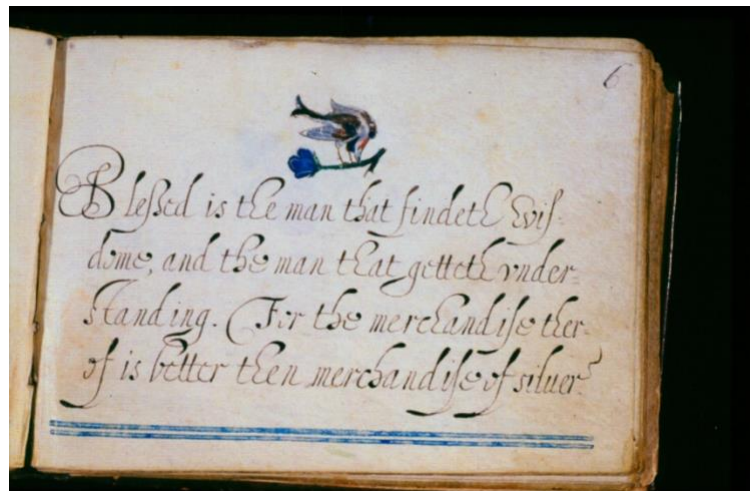 6
Blessed is the man that findeth wis-
dome, and the man that getteth vnder-
standing. For the merchandise ther-
of is better then merchandise of siluer